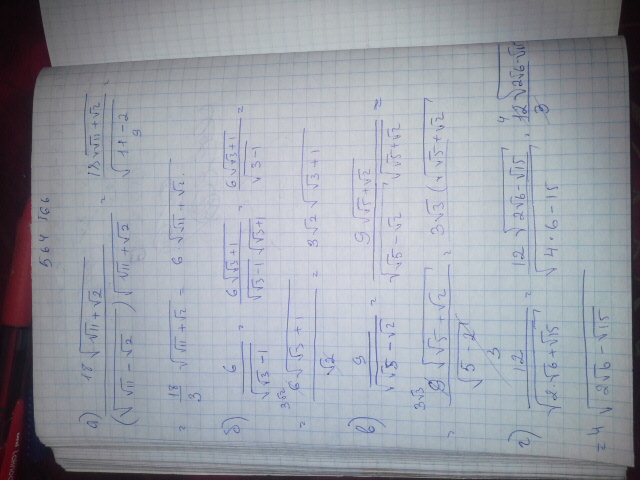 564 стб
а) 18√(√11+√2) / (√(√11-√2))√(√11+√2) = 18√(√11+√2) / √(11-2) 3
= 18/3 √(√11+√2) = 6·√(√11+√2)
б) 6/√(√3-1) = 6√(√3+1) / √(√3-1)√(√3+1) = 6√(√3+1) / √(3-1) =
= 3√2 6√(√3+1) / √2 = 3√2 √(√3+1)
в) 9/√(√5-√2) = 9√(√5+√2) / √(√5-√2) √(√5+√2) =
= 3√3 9√(√5-√2) / √(5-2) 3 = 3√3(√(√5+√2)
г) 12/√(2√6+√15) = 12√(2√6-√15) / √(4·6-15) = 4 12√(2√6-√15 / 3
= 4√(2√6-√15)